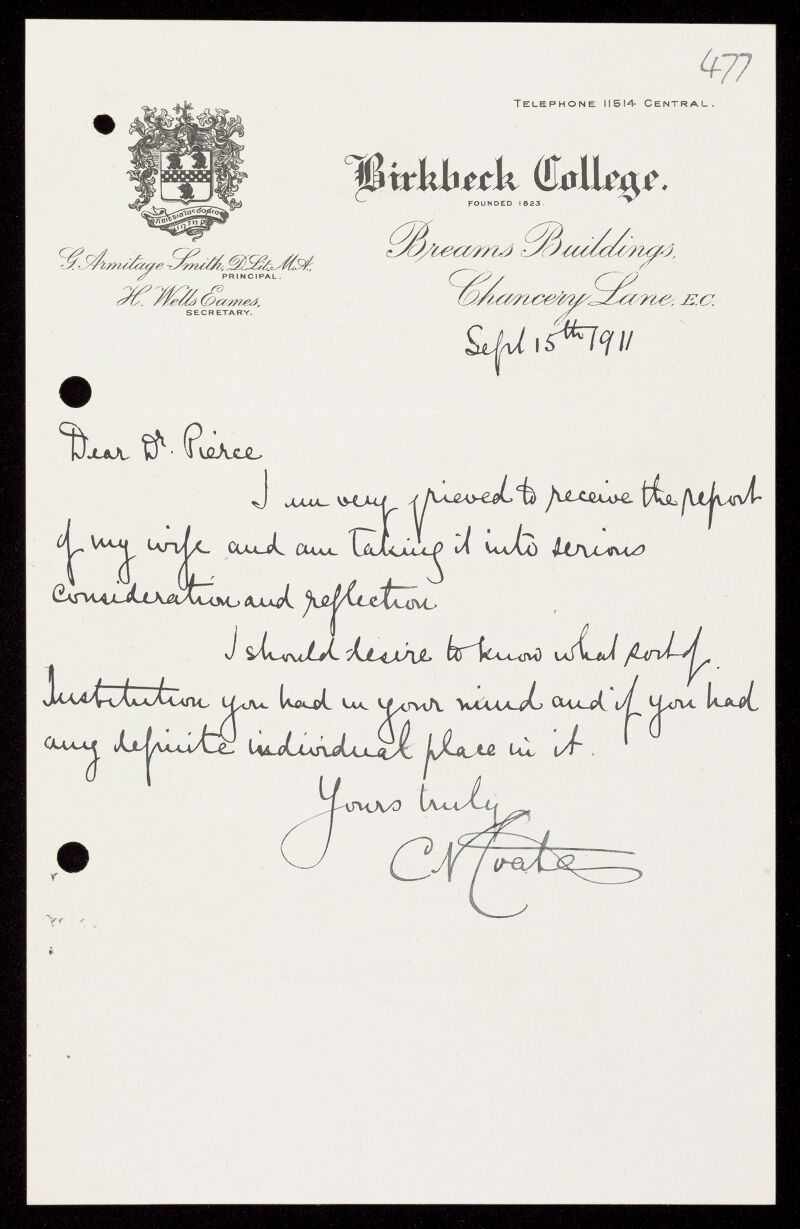 477
TELEPHONE 11514 CENTRAL.
Birkbeck College.
FOUNDED 1823.
G. Armitage-Smith, D.Lit. M.A.
PRINCIPAL.
H. Wells Eames,
SECRETARY.
Breams Buildings,
Chancery Lane, E.C.
Sept 15th 1911
Dear Dr. Pierce
I am very grieved to receive the report
of my wife and am taking it into serious
consideration and reflection
I should desire to know what sort of
Institution you had in your mind and if you had
any definite individual place in it.
Yours truly
C N Coates